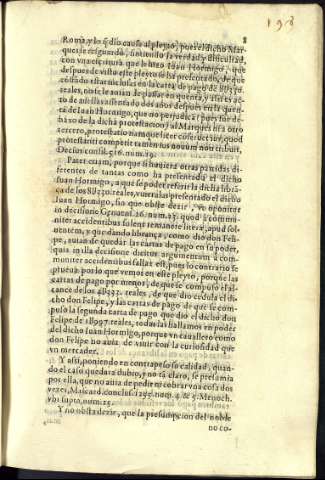 198
8
Roma, y lo q̃ dio causa al pleyto, pues el dicho Mar-
ques se resguardò, sabiendo la verdad y dificultad,
con vna escriptura que le hizo Iuan Hormigo, que
despues de visto este pleyto se ha presentado, de que
estando estas inclusos en la carta de pago de 8U330.
reales, no se le auian de passar en quenta, y assi es ac-
to de addiciones dados años despues en la quen-
ta de Iuan Hormigo, que no perjudica (
de la dicha protestacion) al Marques ni a otro
tercero, protestatio namque licet conseruet ius, quod
protestāti competit tamen ius nouum non tribuit,
Decius consil. 516. num. 19.
Pater etiam, porque si huuiera otras partidas di-
ferentes de tantas como ha presentado el dicho
Iuan Hormigo, a que se poder referir la dicha librā-
ça de los 8U330. reales, vuieralas presentado el dicho
Iuan Hormigo, sin que obste dezir, vt opponitur
in decisione Genuens. 26. num. 17. quod à commu-
niter accidentibus solent remanere literæ, apud sol-
uentem, y que dando librança, como dio don Feli-
pe, auian de quedar las cartas de pago en su poder,
quia in illa decisione dicitur argumentum à com-
muniter accidentibus fallax est, pues lo contrario se
prueua por lo que vemos en este pleyto, porque las
cartas de pago por menor, de que se compuso el al-
cance de los 4U932. reales, de que dio cedula el di-
cho don Felipe, y las cartas de pago de que se com-
puso la segunda carta de pago que dio el dicho don
Felipe de 18U997. reales, todas las hallamos en poder
del dicho Iuan Hormigo, porque vn cauallero como
don Felipe no auia de viuir con la curiosidad que
vn mercader.
Y assi, poniendo en contrapeso se calidad, quan-
do el caso quedara dubio, y no tā claro, se presumia
por ella, que no auia de pedir ni cobrar vna cosa dos
vezes, Mascard. conclus. 1295. num. 4. & 5. Menoch.
vbi supra, num. 25.
Y no obsta dezir, que la presumpcion del noble
no co-